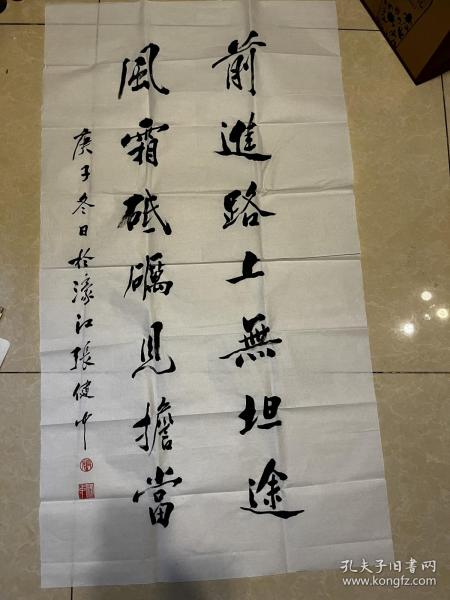 前進路上無坦途
風霜砥礪見擔當
庚子冬日於濠江張健中
孔夫子旧书网
www.kongfz.com